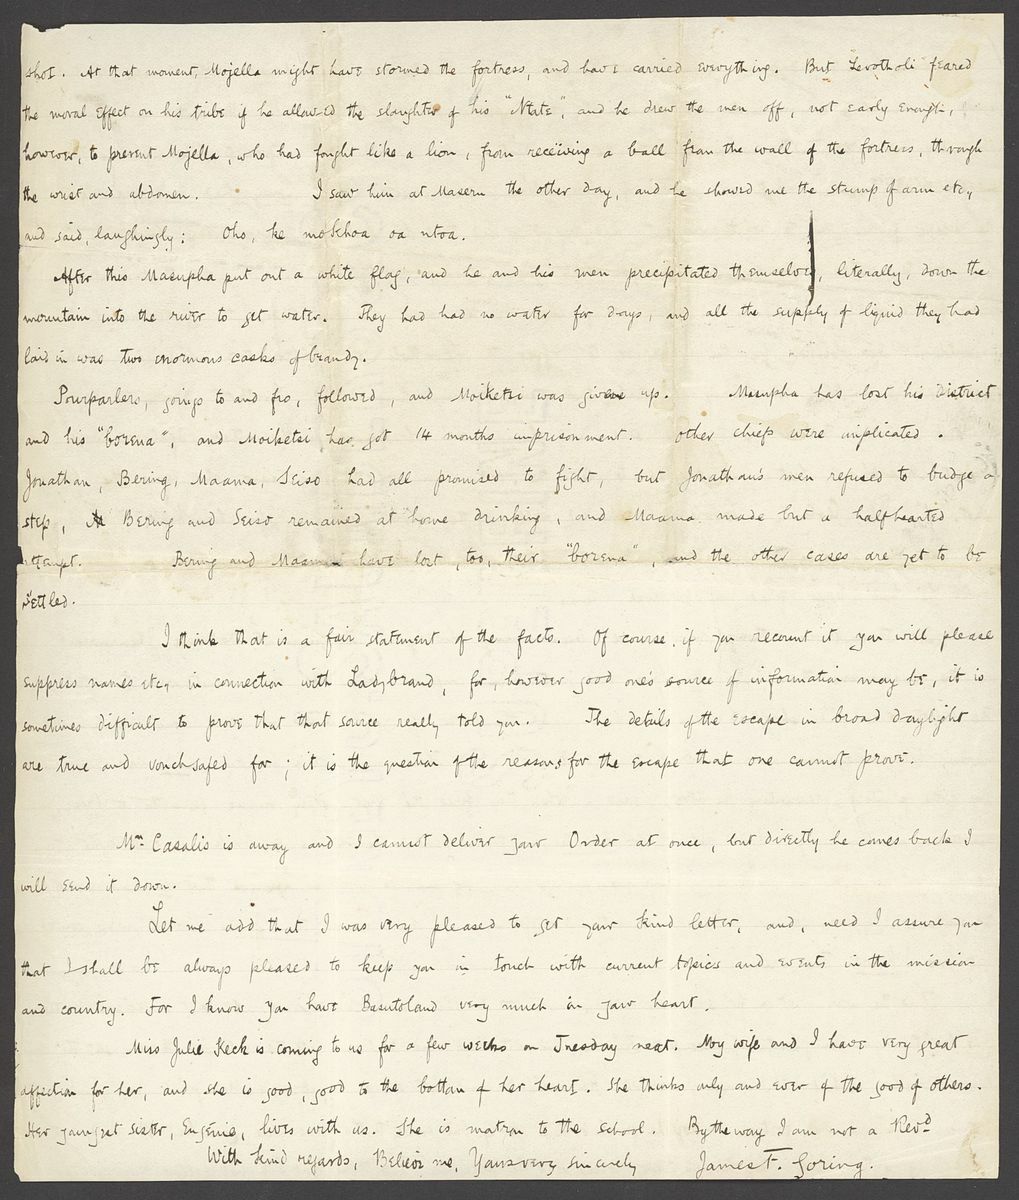 shot. At that moment, Mojella might have stormed the fortress, and have carried everything. But Lerotholi feared
the moral effect on his tribe if he allowed the slaughter of his "Ntate", and he drew the men off, not early enough,
however, to prevent Mojella, who had fought like a lion, from receiving a ball from the wall of the fortress, through
the wrist and abdomen. I saw him at Maseru the other day, and he showed me the stump of arm etc,
and said, laughingly: Oho, ke mokhoa oa ntoa.
After this Masupha put out a white flag, and he and his men precipitated themselves, literally, down the
mountain into the river to get water. They had had no water for days, and all the supply of liquid they had
laid in was two enormous casks of brandy.
Pourparlers, goings to and fro, followed, and Moiketsi was given up. Masupha has lost his District
and his "borena", and Moiketsi has got 14 months imprisonment. Other chiefs were implicated.
Jonathan, Bering, Maama, Seiso had all promised to fight, but Jonathan's men refused to budge a
step, Bering and Seiso remained at home drinking, and Maama made but a halfhearted
attempt. Bering and Maama have lost, too, their "borena", and the other cases are yet to be
settled.
I think that is a fair statement of the facts. Of course, if you recount it you will please
suppress names etc, in connection with Ladybrand, for, however good one's source of information may be, it is
sometimes difficult to prove that that source really told you. The details of the escape in broad daylight
are true and vouchsafed for; it is the question of the reasons for the escape that one cannot prove.
Mr. Casalis is away and I cannot deliver your Order at once, but directly he comes back I
will send it down.
Let me add that I was very pleased to get your kind letter, and, need I assure you
that I shall be always pleased to keep you in touch with current topics and events in the mission
and country. For I know you have Basutoland very much in your heart.
Miss Julie Keck is coming to us for a few weeks on Tuesday next. My wife and I have very great
affection for her, and she is good, good to the bottom of her heart. She thinks only and ever of the good of others.
Her youngest sister, Eugénie, lives with us. She is matron to the school. By the way I am not a Revd
With kind regards, Believe me, Yours very sincerely James F. Goring.